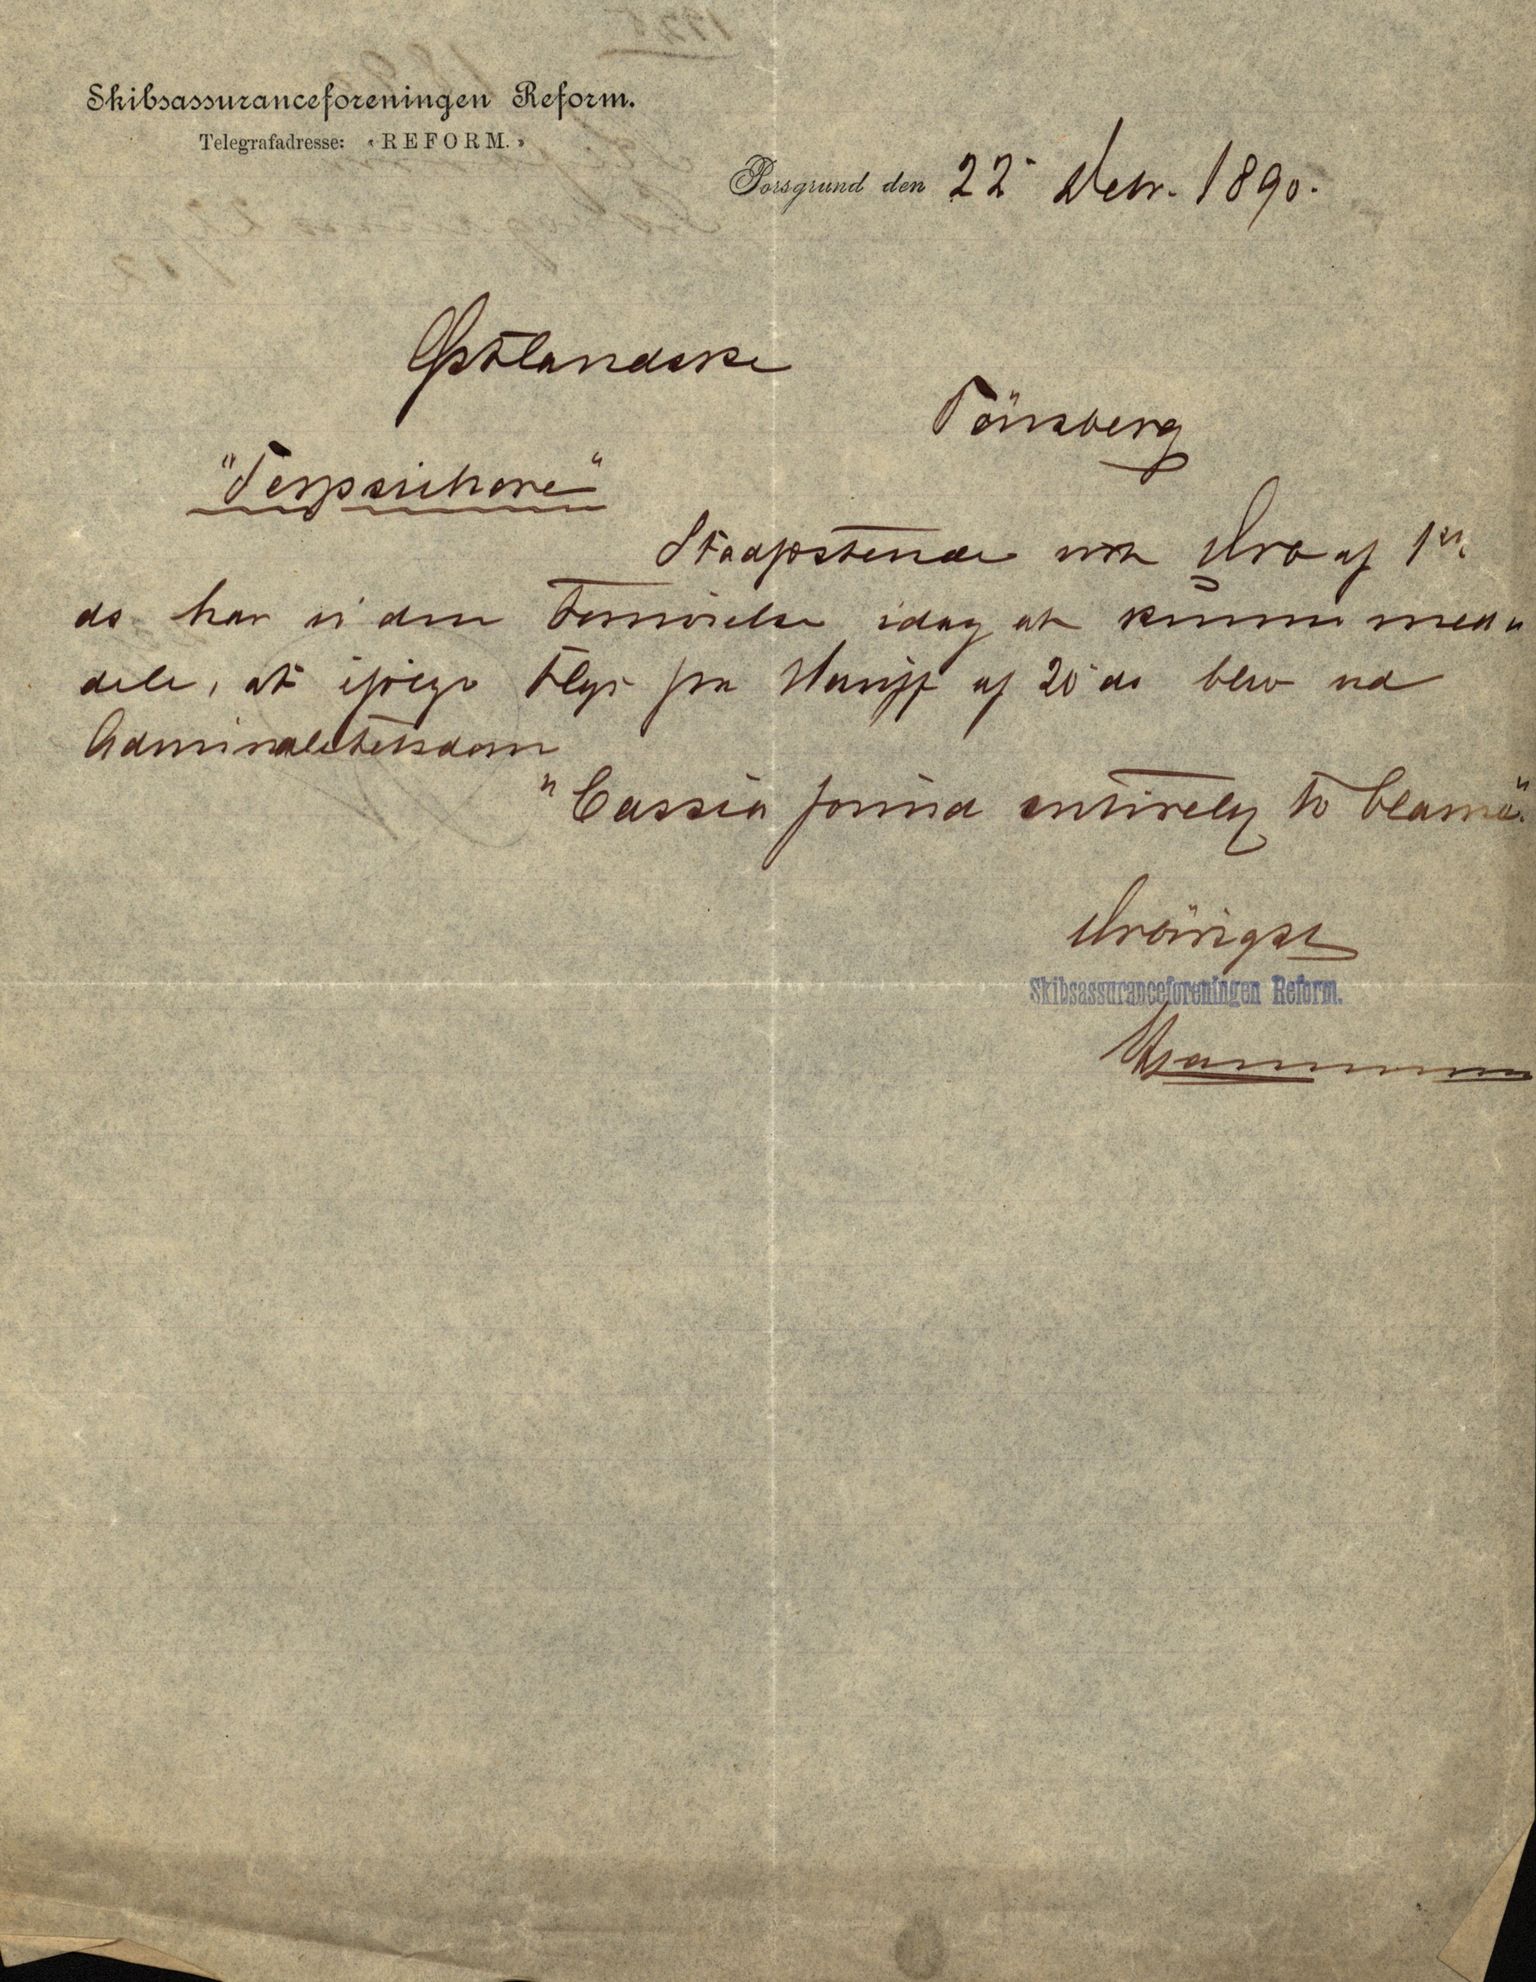 Skibsassuranceforeningen Reform.
Telegrafadresse: «REFORM.»
Porsgrund den 22' Decbr. 1890.
Østlandske
Tönsberg
"Terpsichore"
Stadfæstende vort Dro af 1ste
ds har vi den Fornöielse idag at kunne med-
dele, at ifölge Tlgr fra af 20 ds blev ved
Admiralitetsdom
"Cassia found entirely to blame".
Ærbödigst
Skibsassuranceforeningen Reform.